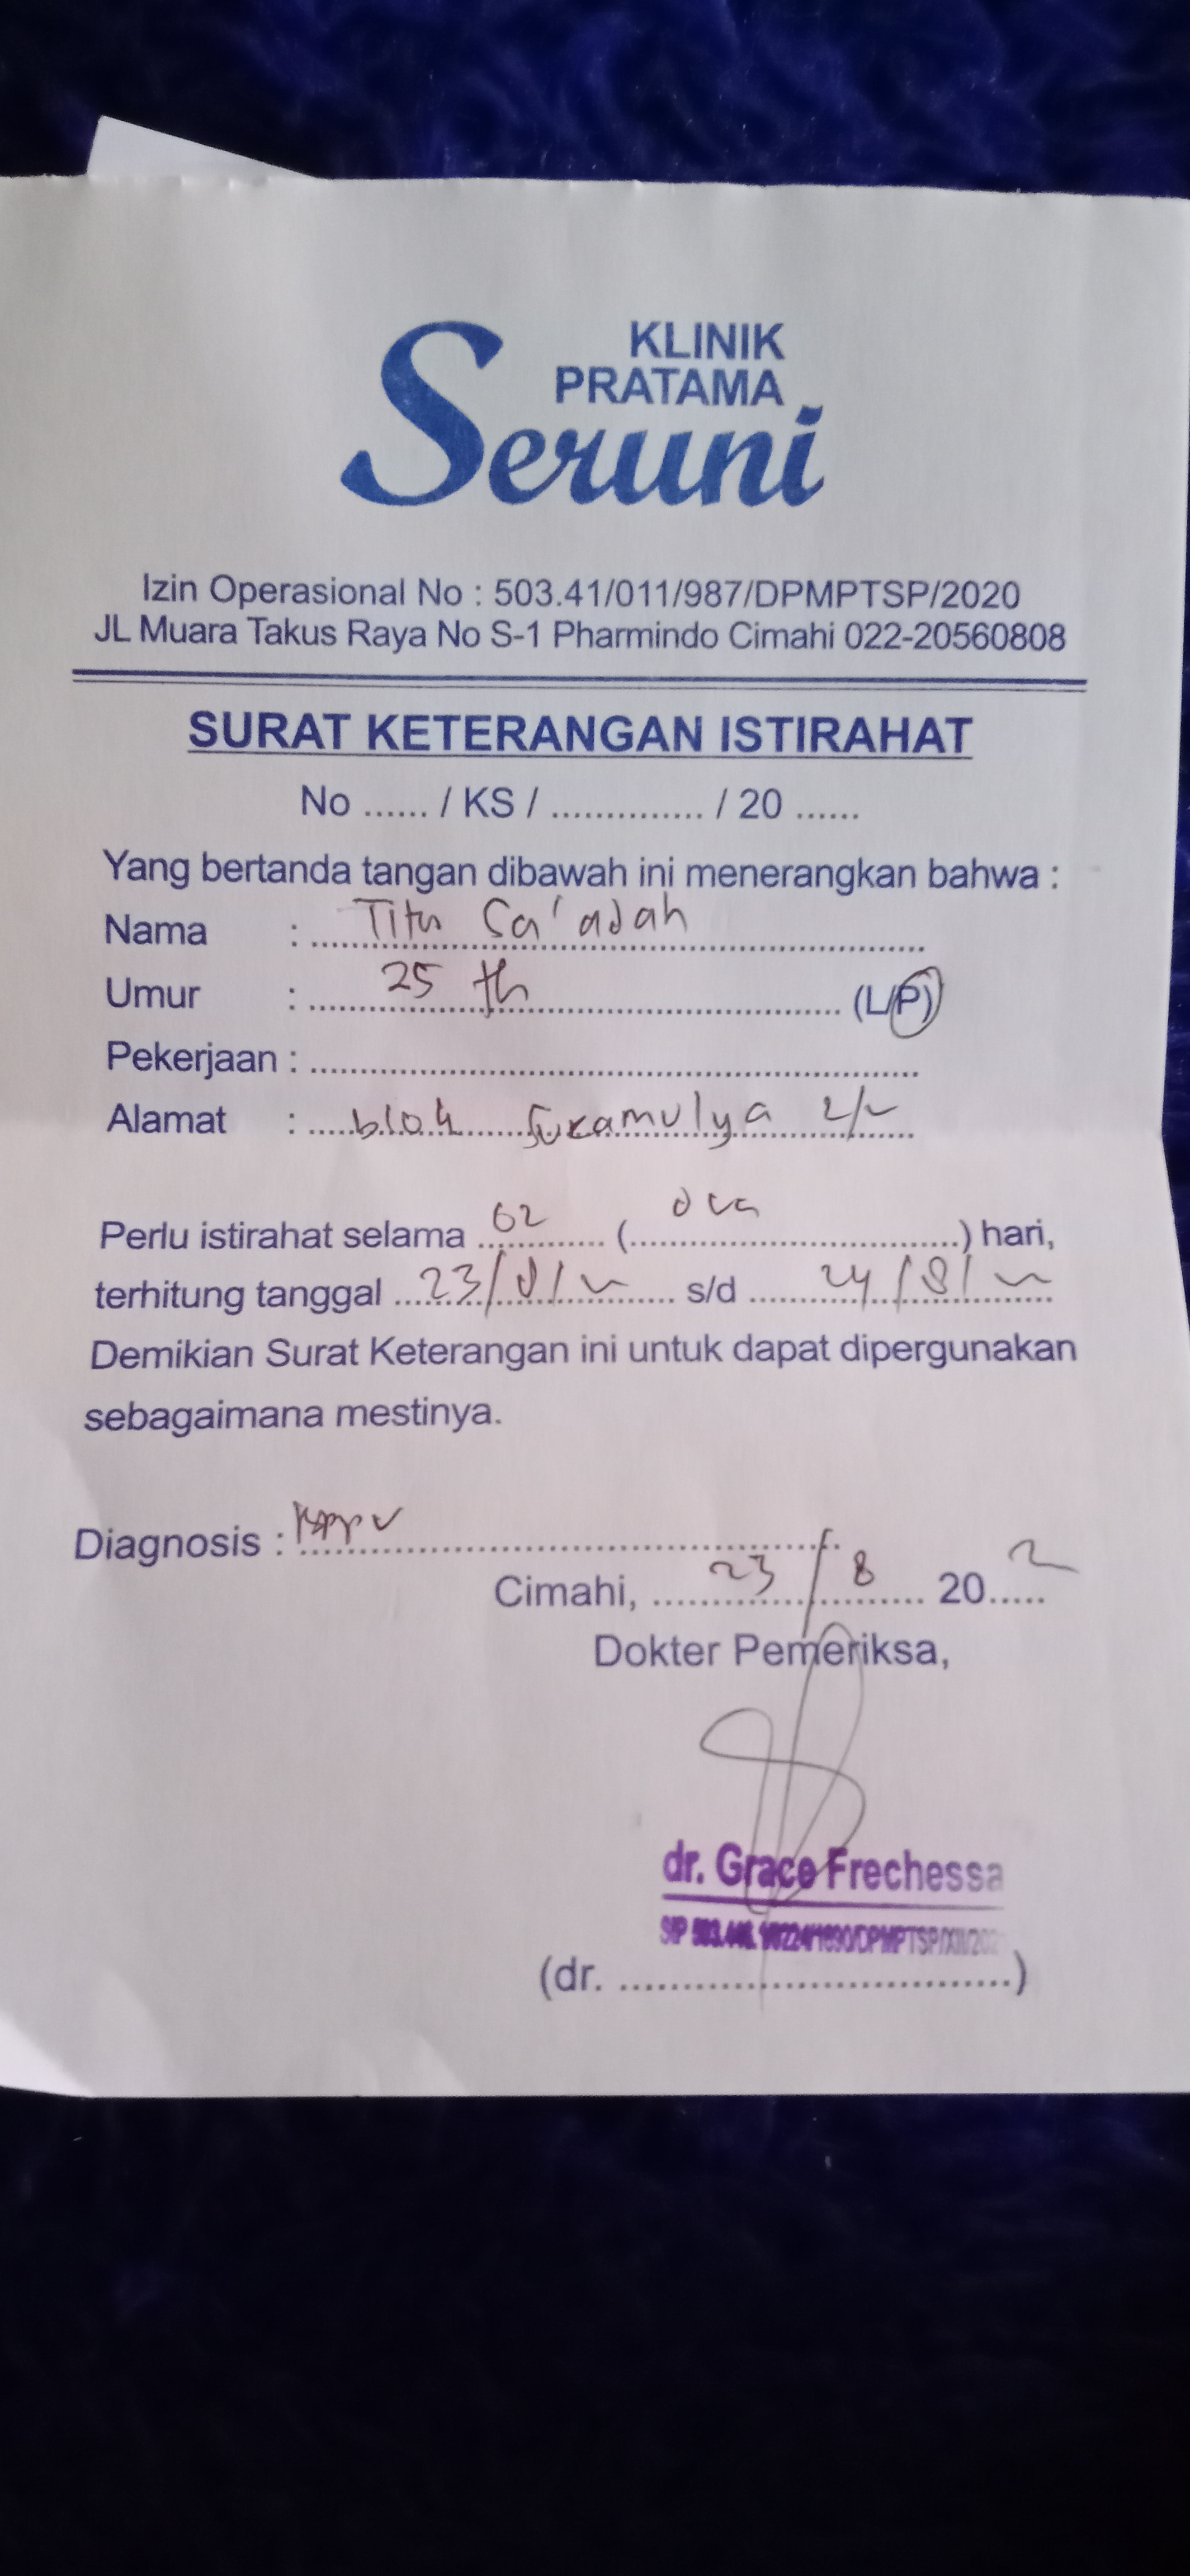 KLINIK
PRATAMA
Seruni
Izin Operasional No : 503.41/011/987/DPMPTSP/2020
JL Muara Takus Raya No S-1 Pharmindo Cimahi 022-20560808
SURAT KETERANGAN ISTIRAHAT
No ...... / KS / .............. / 20 ......
Yang bertanda tangan dibawah ini menerangkan bahwa :
Nama : Sa'adah
Umur : 25 th (L/P)
Pekerjaan :
Alamat : blok Sukamulya 2/2
Perlu istirahat selama 02 (dua) hari,
terhitung tanggal 23/8/ s/d 24/8/
Demikian Surat Keterangan ini untuk dapat dipergunakan
sebagaimana mestinya.
Diagnosis :
Cimahi, 23/8 20
Dokter Pemeriksa,
dr. Grace Frechessa
(dr. ..............................)